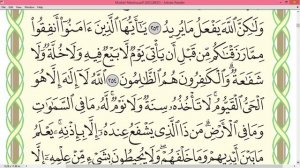 Mushaf Madinah.pdf (SECURED) - Adobe Reader
وَلَٰكِنَّ ٱللَّهَ يَفْعَلُ مَا يُرِيدُ ٢٥٣ يَٰٓأَيُّهَا ٱلَّذِينَ ءَامَنُوٓا۟ أَنفِقُوا۟
مِمَّا رَزَقْنَٰكُم مِّن قَبْلِ أَن يَأْتِىَ يَوْمٌ لَّا بَيْعٌ فِيهِ وَلَا خُلَّةٌ وَلَا
شَفَٰعَةٌ وَٱلْكَٰفِرُونَ هُمُ ٱلظَّٰلِمُونَ ٢٥٤ ٱللَّهُ لَآ إِلَٰهَ إِلَّا هُوَ
ٱلْحَىُّ ٱلْقَيُّومُ لَا تَأْخُذُهُۥ سِنَةٌ وَلَا نَوْمٌ لَّهُۥ مَا فِى ٱلسَّمَٰوَٰتِ
وَمَا فِى ٱلْأَرْضِ مَن ذَا ٱلَّذِى يَشْفَعُ عِندَهُۥٓ إِلَّا بِإِذْنِهِۦ يَعْلَمُ
مَا بَيْنَ أَيْدِيهِمْ وَمَا خَلْفَهُمْ وَلَا يُحِيطُونَ بِشَىْءٍ مِّنْ عِلْمِهِۦٓ إِلَّا